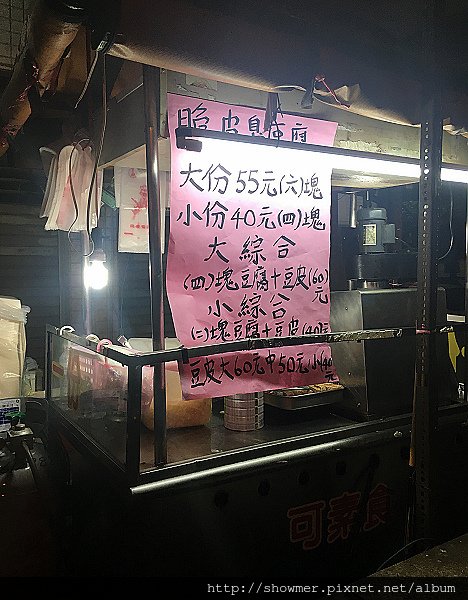 脆皮臭豆腐
大份55元(六)塊
小份40元(四)塊
大綜合
(四)塊豆腐+豆皮(60)元
小綜合
(二)塊豆腐+豆皮(40)元
豆皮大60元中50元小40元
可素食
http://showmer.pixnet.net/album